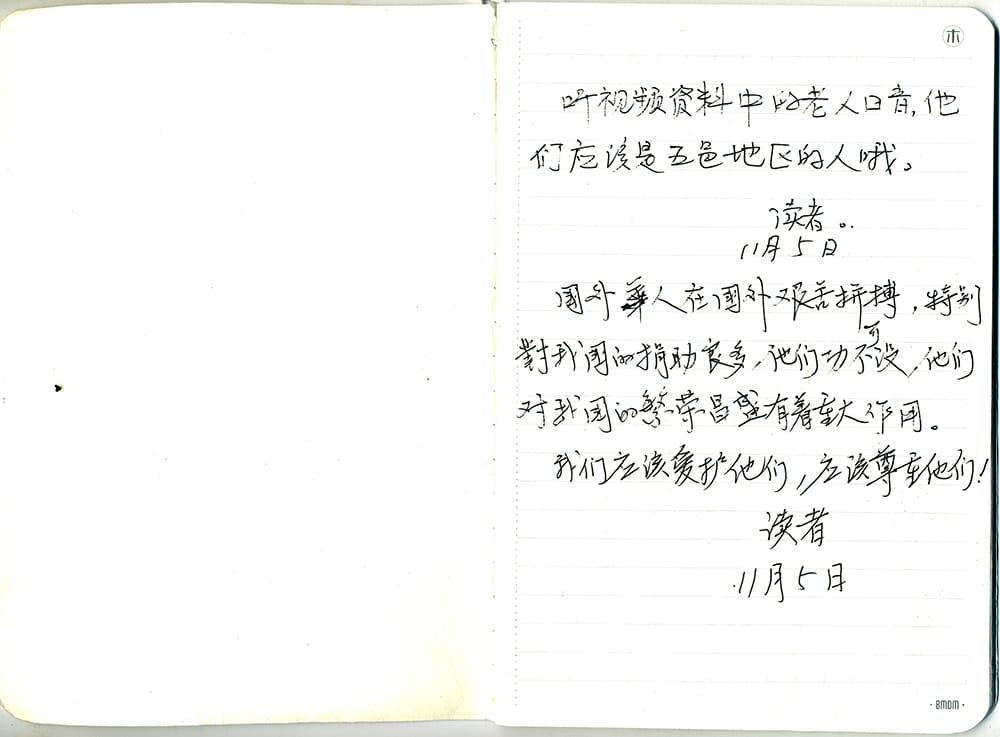 木
听视频资料中的老人口音,他
们应该是五邑地区的人哦。
读者。
11月5日
国外華人在国外艰苦拼搏,特别
對我国的捐助良多,他们功不可没,他们
对我国的繁荣昌盛有着重大作用。
我们应该爱护他们,应该尊重他们!
读者
11月5日
·8MOM·